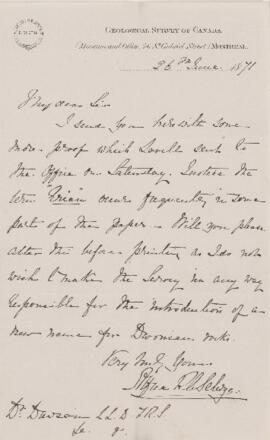 GEOLOGICAL SURVEY OF CANADA.
(Museum and Office, 76, St. Gabriel Street) MONTREAL.
26th June 1871
My dear Sir
I send you herewith some
more proof which Lovell sent to
the Office on Saturday. I notice the
term "Erian" occurs frequently in some
parts of the paper - Will you please
alter this before printing as I do not
wish to make the Survey in any way
responsible for the introduction of a
new name for Devonian rocks.
Very truly Yours
Alfred R. C. Selwyn
Dr. Dawson LL.D F.R.S
&c